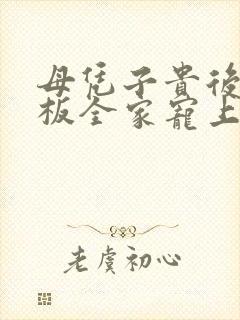 母凭子貴後
板全家寵上
老虞初心